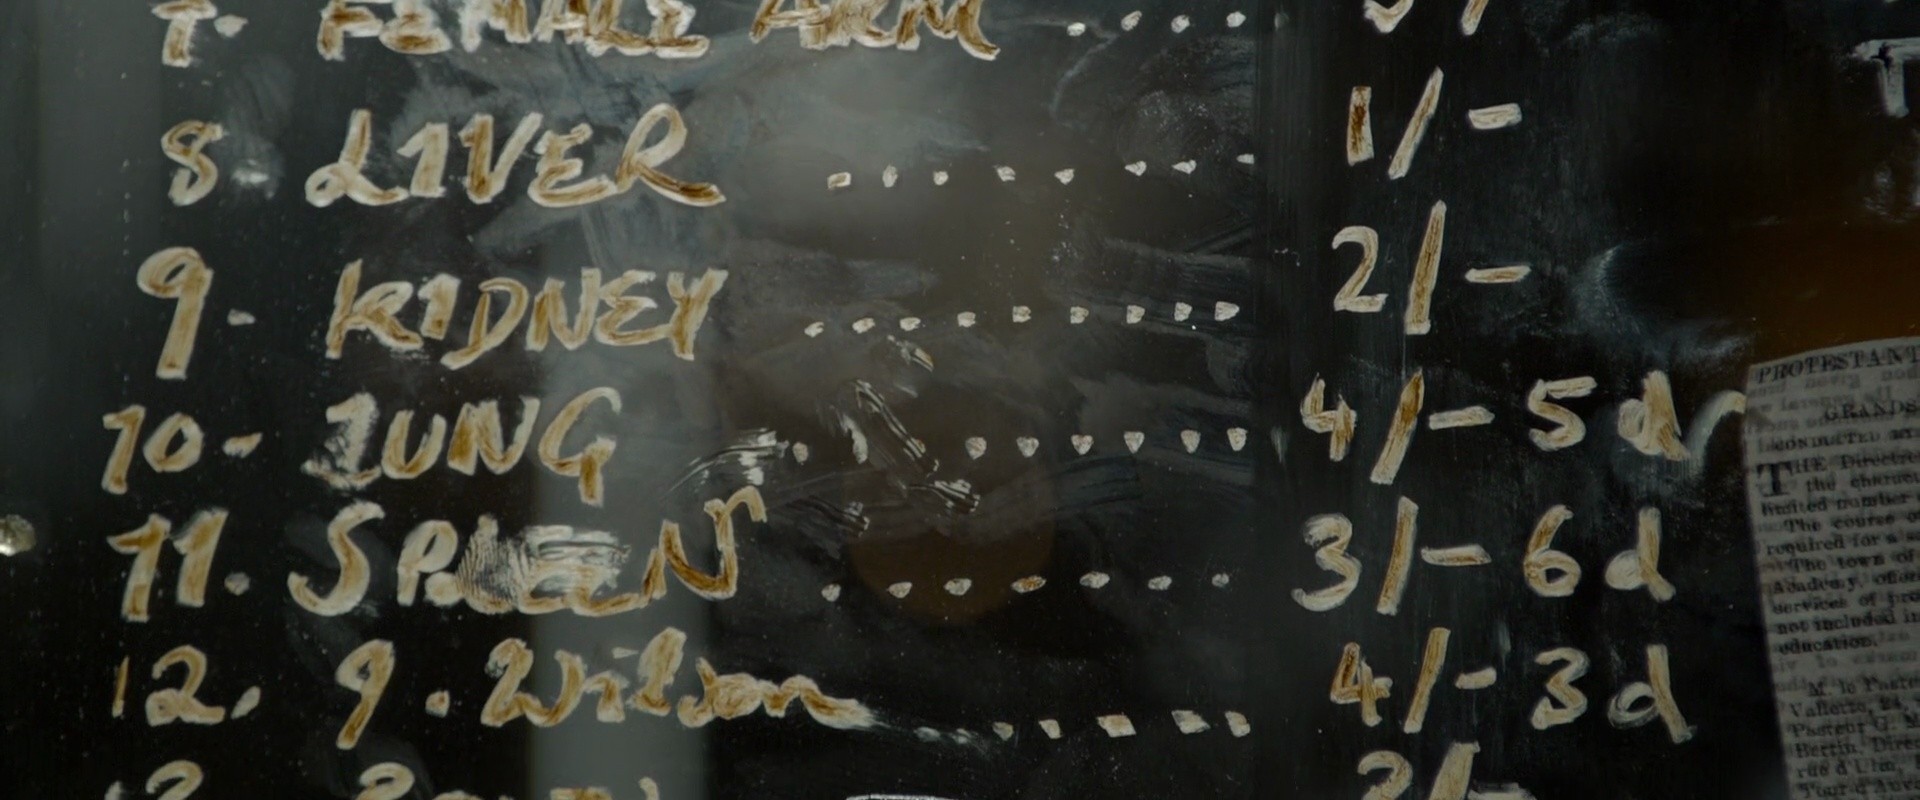 7. FEMALE ARM ....
8 LIVER ........ 1/-
9. KIDNEY ......... 2/-
10- LUNG ........ 4/-5d
11. SPLEEN ....... 3/-6d
12. 9. Wilson ..... 4/-3d
PROTESTANT
GRANDS
CONDUCTED
THE Directre
the charact
limited number
The course of
required for a
The town of
Academy
services of pro
not included in
education.
M. le Paste
Vallette, 24,
Pasteur G. M
Bertin, Direc
rue d'Ulm,